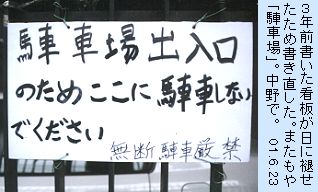 駐車場出入口
のためここに駐車しない
でください
無断駐車厳禁
３年前書いた看板が日に褪せ
たため書き直した。またもや
「駐車場」。中野で。 01.6.23